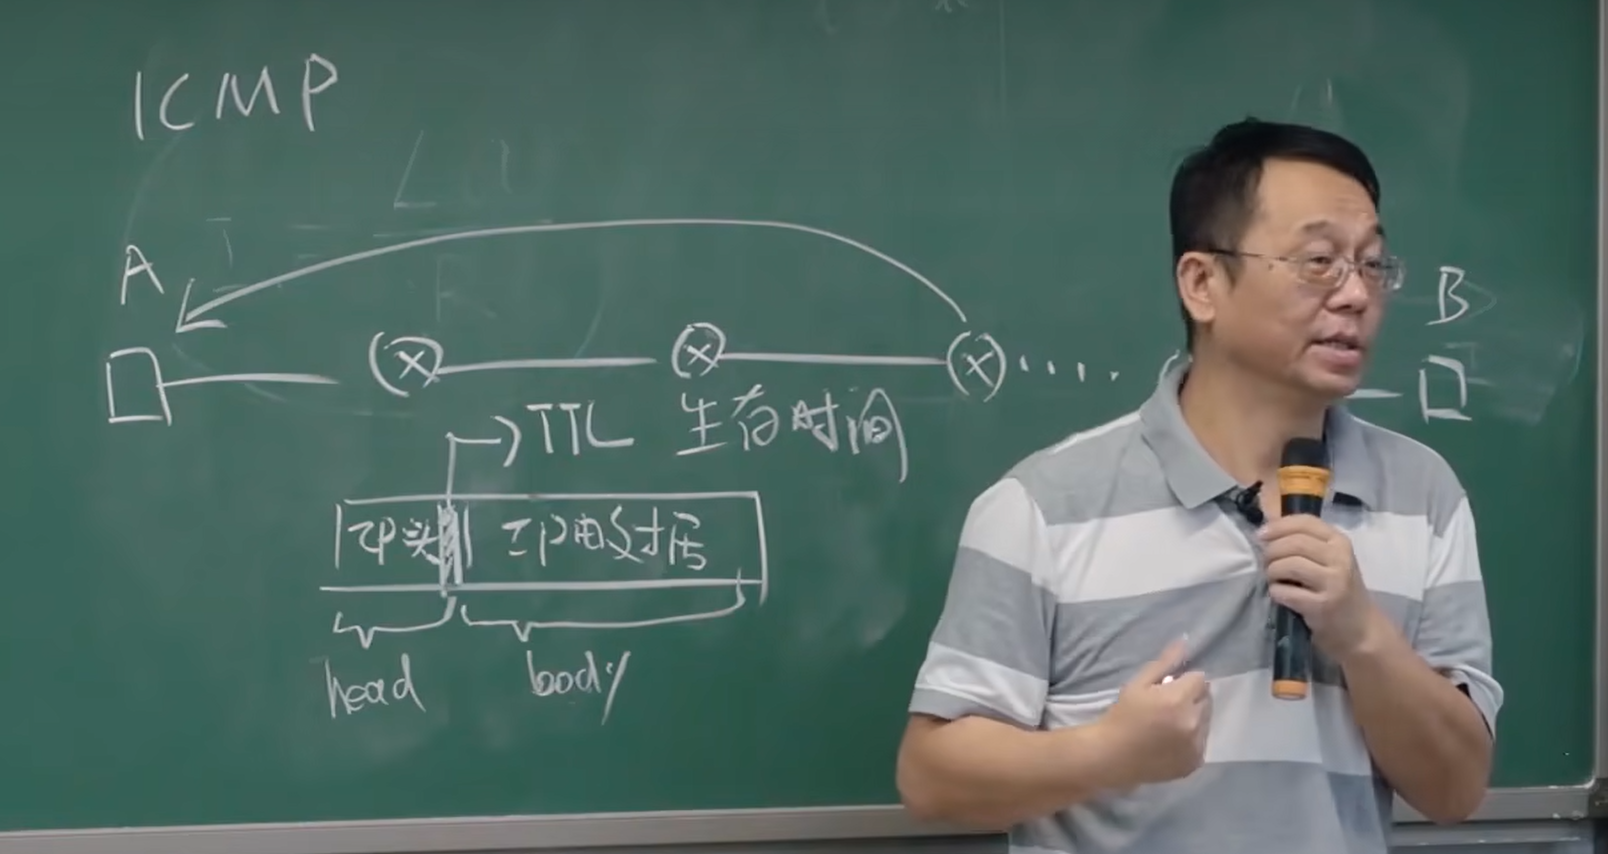 ICMP
A
B
TTL 生存时间
IP头 IP的对居
head body